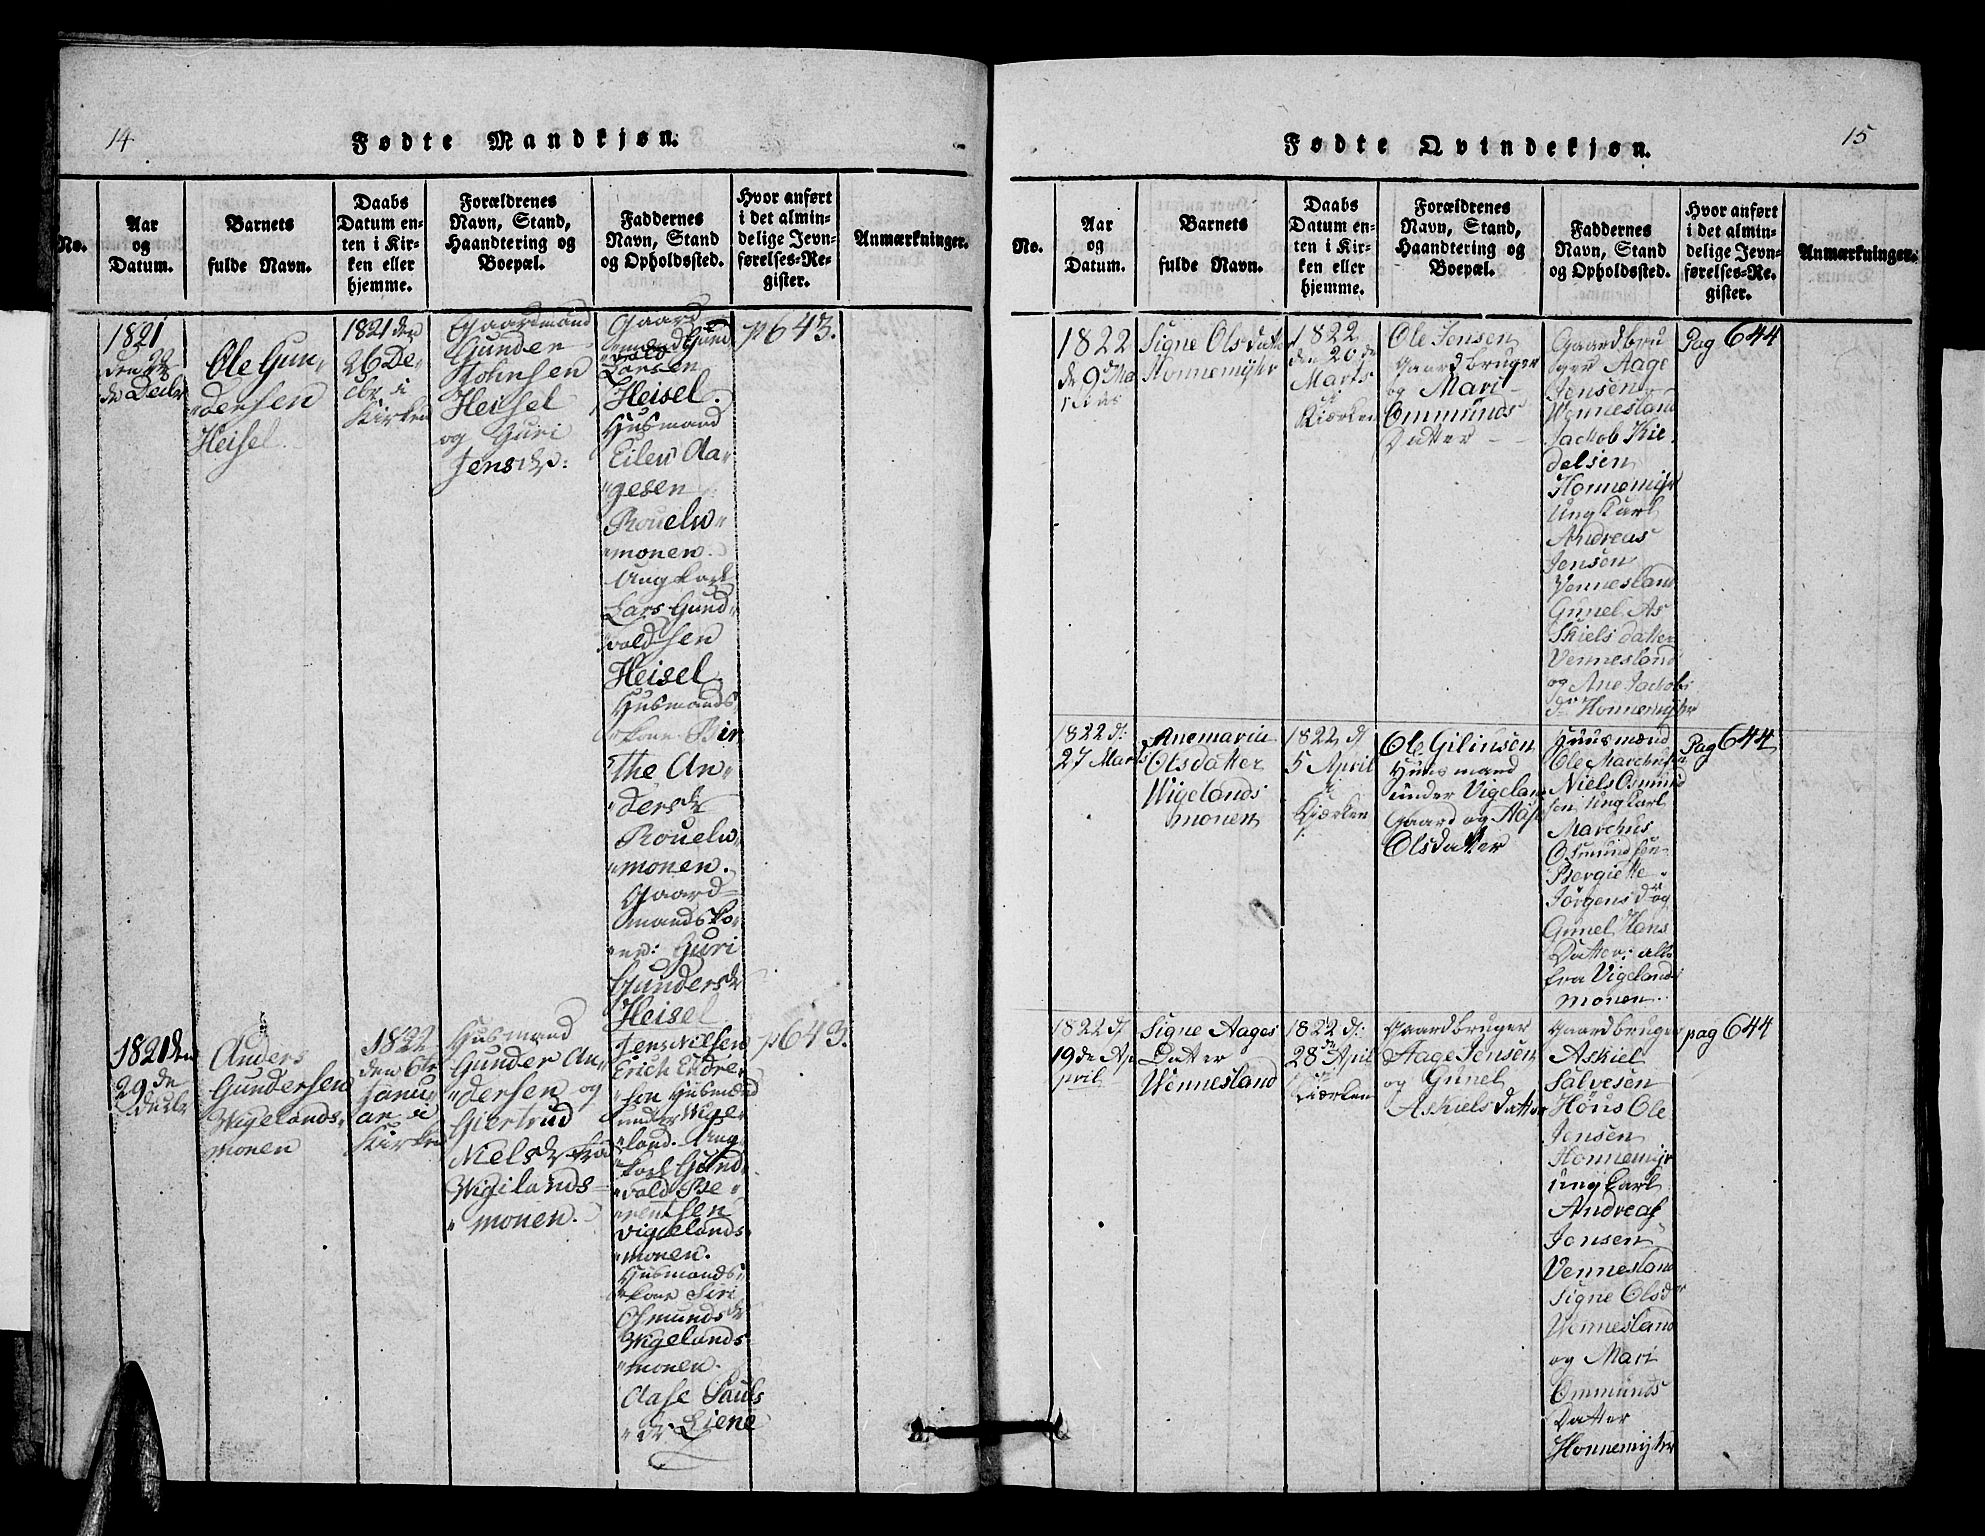 14
Fødte Mandkjøn.
No.
Aar
og
Datum.
Barnets
fulde Navn.
Daabs
Datum en-
ten i Kir-
ken eller
hjemme.
Forældrenes
Navn, Stand,
Haandtering og
Boepæl.
Faddernes
Navn, Stand
og Opholdssted.
Hvor anført
i det almin-
delige Jevn-
førelses-Re-
gister.
Anmærkninger.
1821
den 22
de Decbr
Ole Gun-
dersen
Heisel
1821 den
26 De-
cbr i
Kirken
Gaardmand
Gunder
Johnsen
Heisel
og Guri
Jensdr:
Gaard-
mand Gund
vald
Larsen
Heisel.
Husmand
Eilev Aa-
gesen
Rouelw
monen.
Ung karl
Lars Gund-
voldsen
Heisel
Husmands
kone Bir
the An-
dersdr
Rouelw
monen.
Gaard
mandsko-
ne: Guri
Gundersdr
Heisel
p643.
1821 den
29 de
Decbr
Anders
Gundersen
Wigelands-
monen
1822
den 6te
Janu-
ar i
Kirken
Husmand
Gunder An-
dersen og
Giertrud
Nielsdr fra
Wigilands=
monen.
Jens Nilsen
Erich Endre-
sen Husmænd
under Wige-
land. Ung-
karl Gund-
vold Be-
rentsen
Vigelands-
monen.
Husmands-
kone Siri
Osmundsdr
Wigelands-
monen.
Aase Pauls
dr Liene
p643.
15
Fødte Qvindekjøn.
No.
Aar
og
Datum.
Barnets
fulde Navn.
Daabs
Datum en-
ten i Kir-
ken eller
hjemme.
Forældrenes
Navn, Stand,
Haandtering og
Boepæl.
Faddernes
Navn, Stand
og Opholdssted.
Hvor anført
i det almin-
delige Jevn-
førelses-Re-
gister.
Anmærkninger.
1822
d 9 Ma
Signe Ols datter
Honnemyhr
1822
den 20 de
Marts
i
Kiærken
Ole Jensen
Gaardbruger
og Mari
Ommunds
Datter
Gaardbru
ger Aage
Jensen
Wennesland
Jackob Kie
delsen
Honnemyr
Ung Karl
Andreas
Jensen
Vennesland
Gunel As
kiels datter
Vennesland
og Ane Jackobs
dr Honnemyhr
Pag 644
1822 d:
27 Marts
Anemarie
Olsdatter
Wigelands
monen
1822 d
5 April
i
Kiærken
Ole Gilinsen
Huusmand
under Vigelan
Gaard og Aase
Olsdatter
Huusmænd
Ole Marchusen
Niels Osmund
sen Ung Karl
Marchus
Osmundsen
Bergiette
Jørgens dr og
Gunel Hans
Datter: alle
fra Vigeland
monen.
Pag 644
1822 d
19 de Ap
pril
Signe Aages
Datter
Wennesland
1822 d:
28 de April
i
Kiærken
Gaardbruger
Aage Jensen
og Gunel
Askiels datter
Gaardbruger
Askiel
Salvesen
Høus Ole
Jensen
Honnemyr
ung karl
Andreas
Jensen
Vennesland
Signe Olsdr
Wennesland
og Mari
Ommunds
Datter
Honnemyhr
pag 644